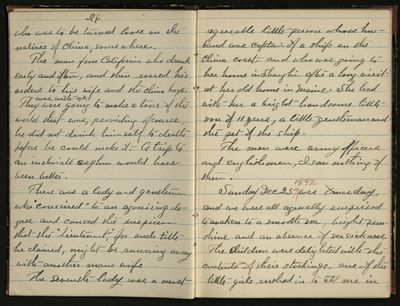 26.
who was to be turned loose on the
natives of China, somewhere.
The man from California who drank
early and often, and then roared his
orders to his wife and the China boys.
was with us
They were going to make a tour of the
world they was, providing of course
he did not drink himself to death
before he could make it. A trip to
an inebriate asylum would have
been better.
There was a lady and gentleman
who "concined" to an agonizing de-
gree and caused the suspicion
that the "lieutenant", for such title
he claimed, might be running away
with another mans wife.
The seventh lady was a most
agreeable little person whose hus-
band was captain of a ship on the
China coast and who was going to
her home in Shanghai after a long visit
at her old home in Maine. She had
with her a bright handsome little
son of 11 years, a little gentleman and
the pet of the ship.
The men were army officers
and englishmen, I saw nothing of
them.
1892
Sunday Dec 25 was Xmas day,
and we were all agreeably surprised
to awaken to a smooth sea, bright sun-
shine and an absence of seasickness.
The children were delighted with the
contents of their stockings, one of the
little girls rushed in to let me in